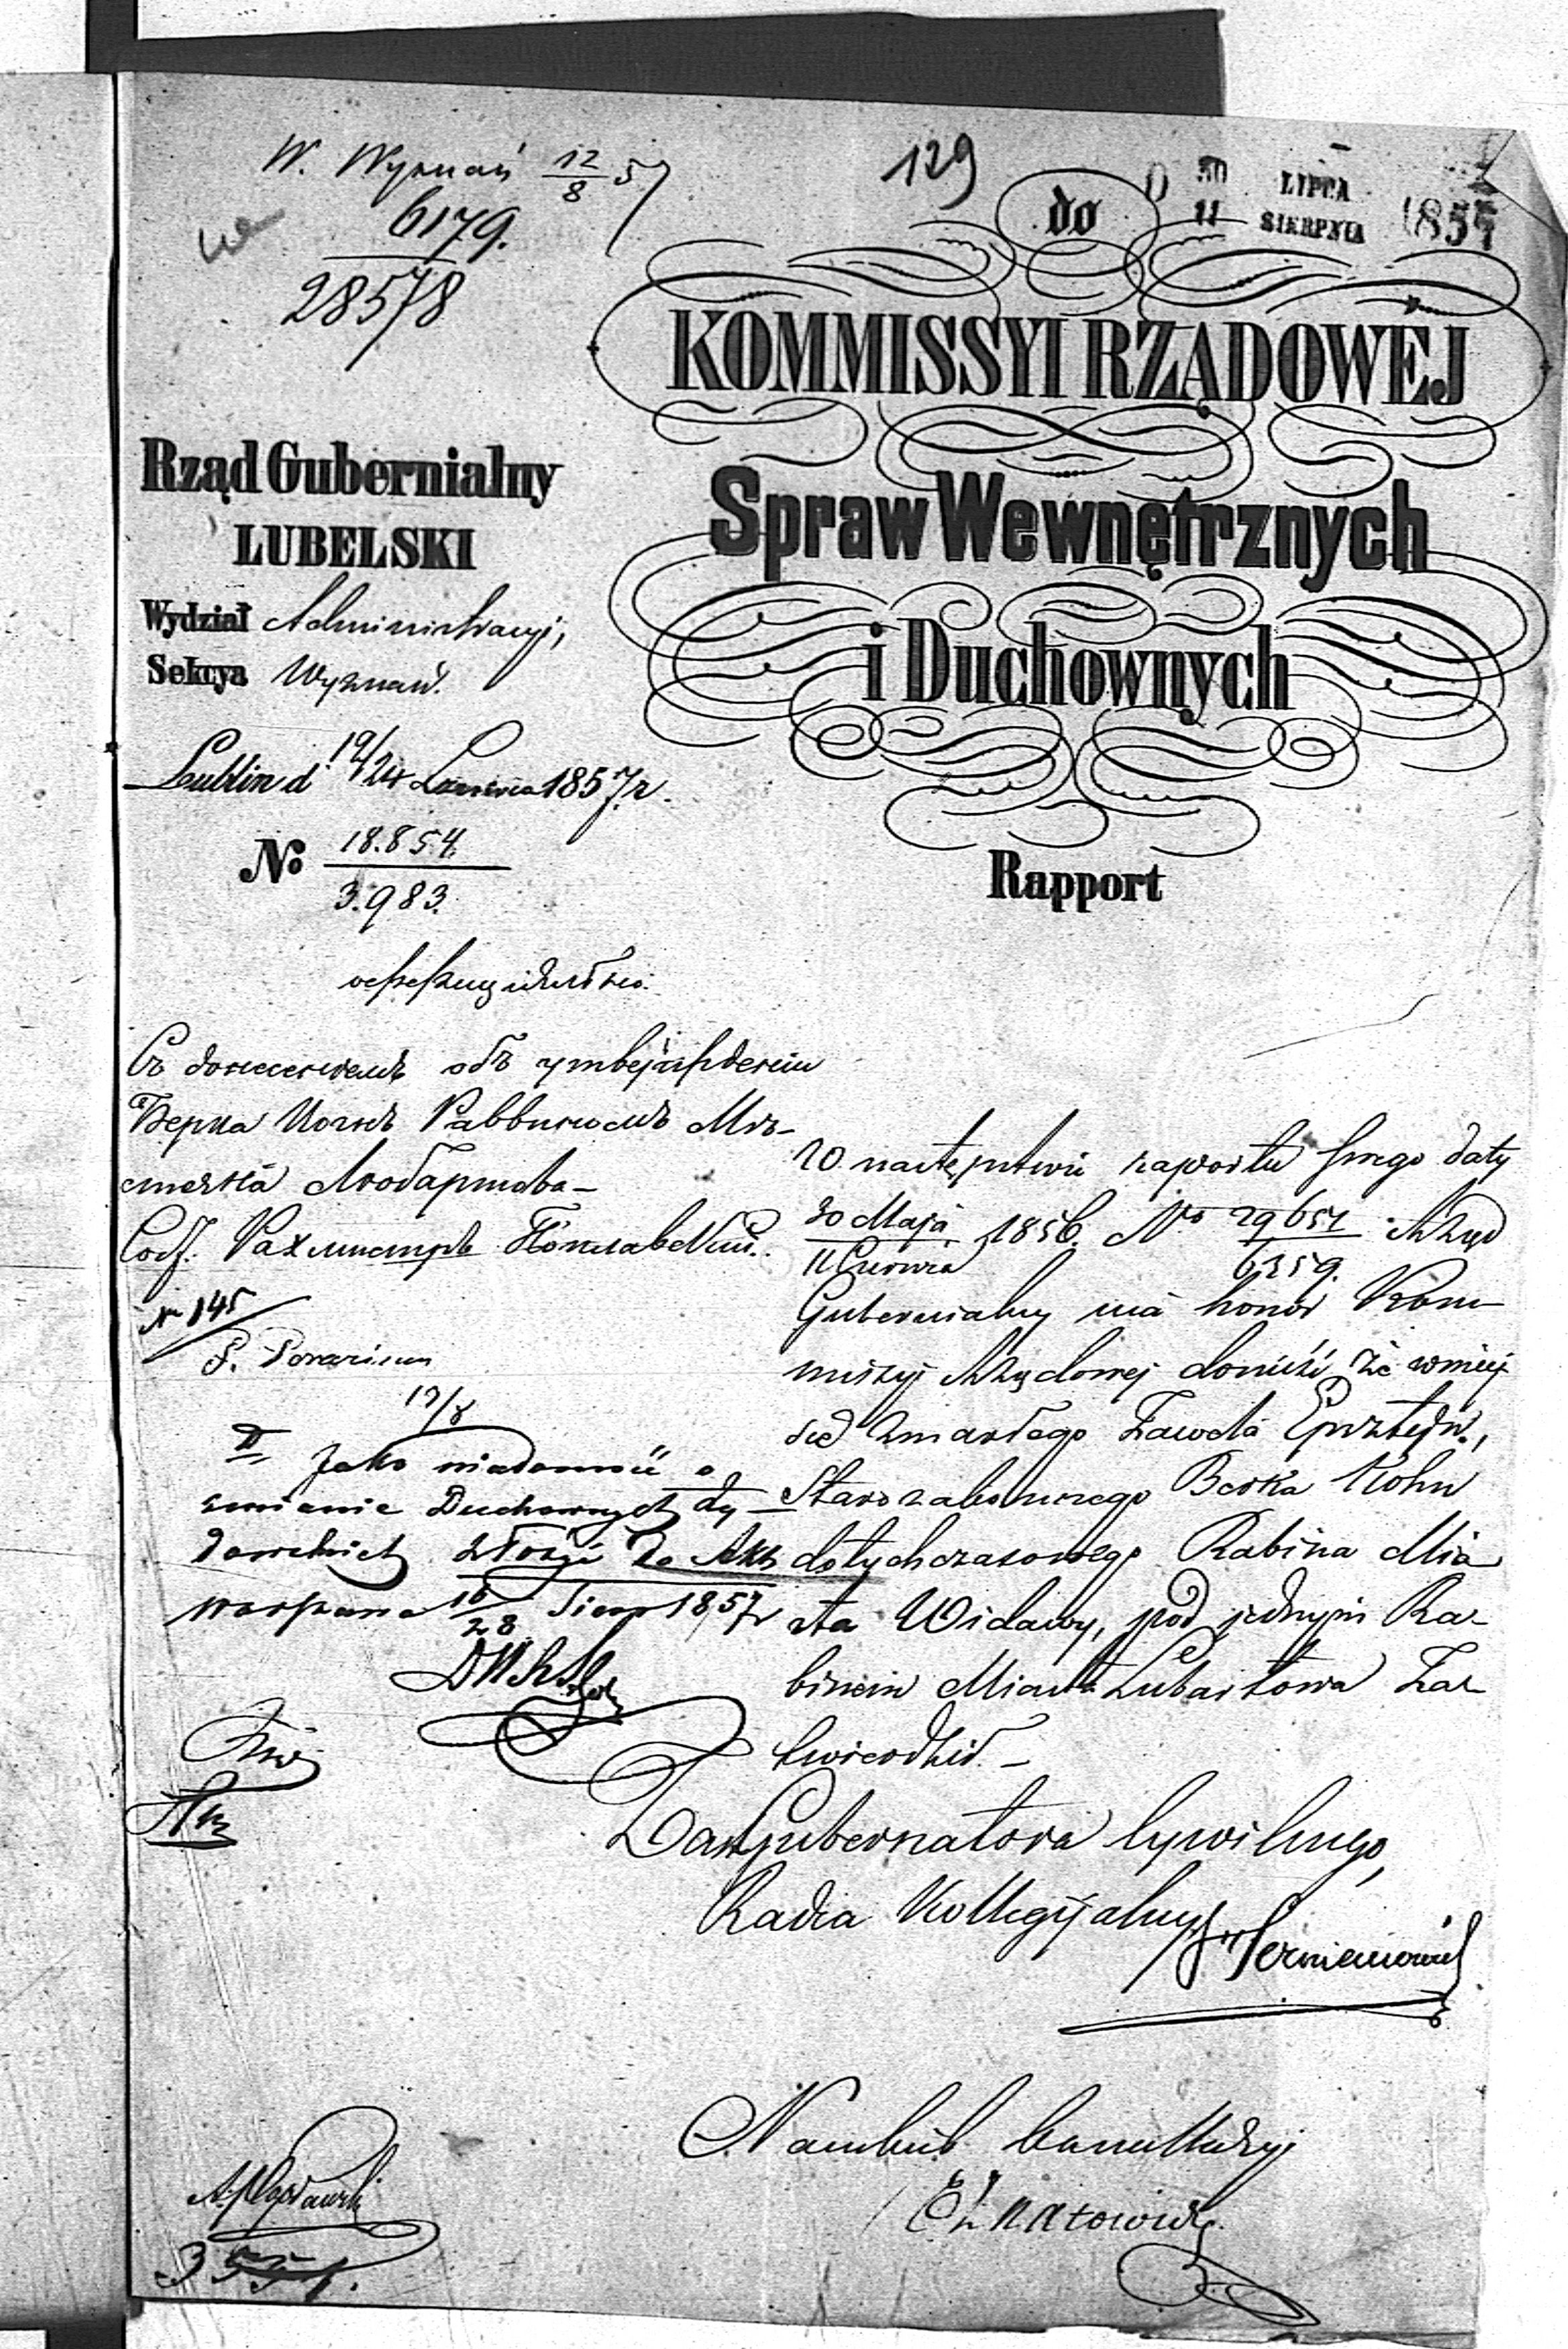 W. Wyznań 12/8 57
6179.
28578
129
do
30 LIPCA
11 SIERPNIA 1857
KOMMISSYI RZĄDOWEJ
Spraw Wewnętrznych
i Duchownych
Rapport
Rząd Gubernialny
LUBELSKI
Wydział Administracyj,
Sekcya Wyznań.
Lublin d 12/24 Czerwca 1857 r.
No 18.854.
3.983.
Съ донесеніемъ объ утвержденіи
Берка Конъ Раввиномъ Мѣ-
стечка Любартова –
No 145
17/8
II Jako wiadomość o
zmianie Duchownych ży-
dowskich złożyć do Akt
Warszawa 16/28 Sierp 1857 r
W następstwie raportu swego daty
30 Maja / 11 Czerwca 1856. No 29651 / 6359. Rząd
Gubernialny ma honor Kom-
missyi Rządowej donieść, że w miej-
sce zmarłego Zawela Epsztejn,
Starozakonnego Berka Kohn
dotychczasowego Rabina Mia-
sta Widawy, pod jednym Ra-
binem Miasta Lubartowa Za-
twierdził. –
Za Gubernatora Cywilnego,
Radca Kollegijalny
Naczelnik Kancellaryi